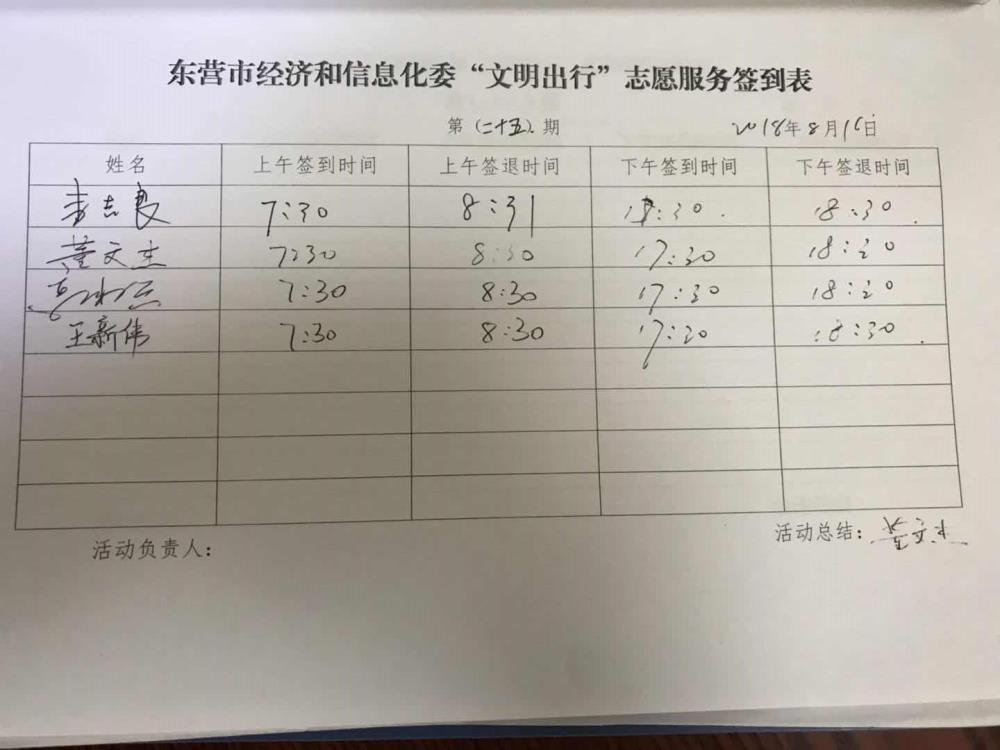 东营市经济和信息化委“文明出行”志愿服务签到表
第（二十五）期 2018年8月16日
姓名 上午签到时间 上午签退时间 下午签到时间 下午签退时间
李志良 7:30 8:31 17:30 18:30
董文杰 7:30 8:30 17:30 18:30
7:30 8:30 17:30 18:30
王新伟 7:30 8:30 17:30 18:30
活动负责人：
活动总结：